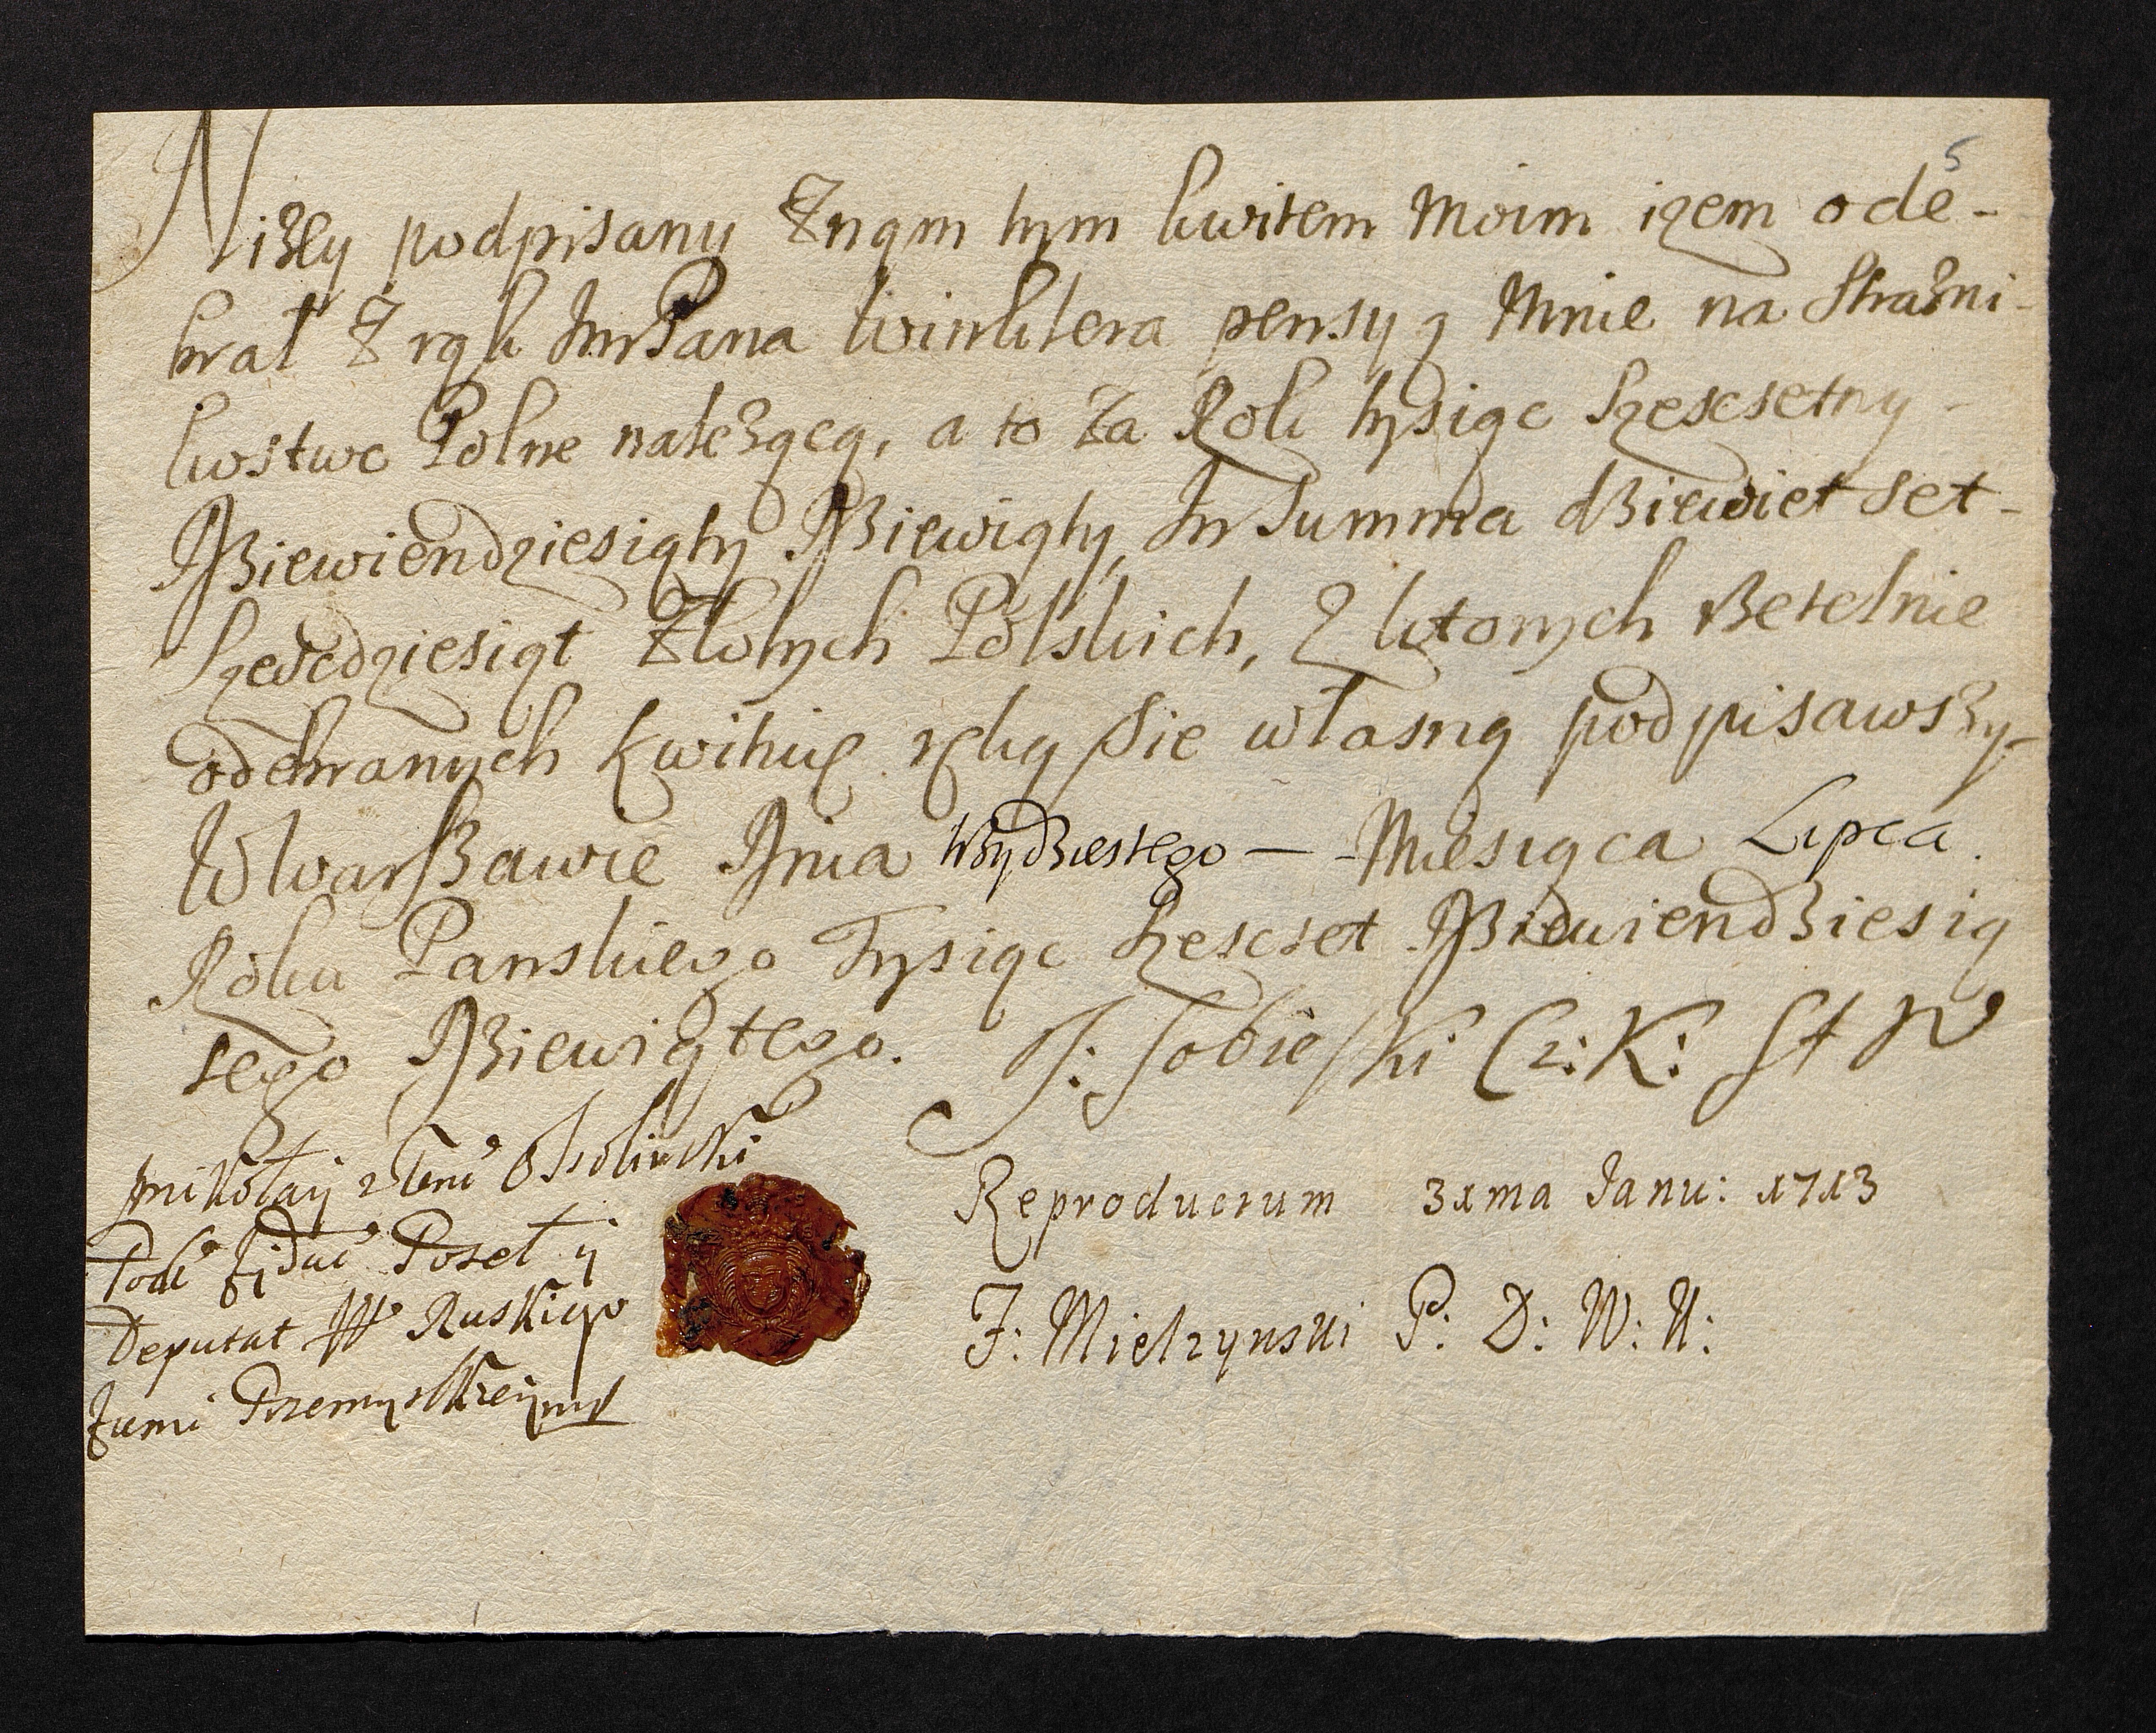 5
Niżey podpisany Znam tym kwitem Moim iżem ode-
brał Z rąk ImPana Winklera pensyą Mnie na Strażni-
kostwo Polne należącą, a to Za Rok tysiąc Szescsetny
Dziewiendziesiąty Dziewiąty, In Summa dziewiet set-
Szescdziesiąt Złotych Polskich, Z ktorych Rzetelnie
odebranych kwituię ręką Sie własną podpisawszy-
W Warszawie Dnia trzydziestego — Miesiąca Lipca.
Roku Panskiego Tysiąc Szescset Dziewiendziesią
tego Dziewiątego. J: Sobieski Cz: K: St W
Mikołaij z Ossolinski
Poseł ij
Deputat W Ruskiego
Ziemi Przemyskieij
Reproducrum 31ma Janu: 1713
J: Mielzynski P: D: W: K: